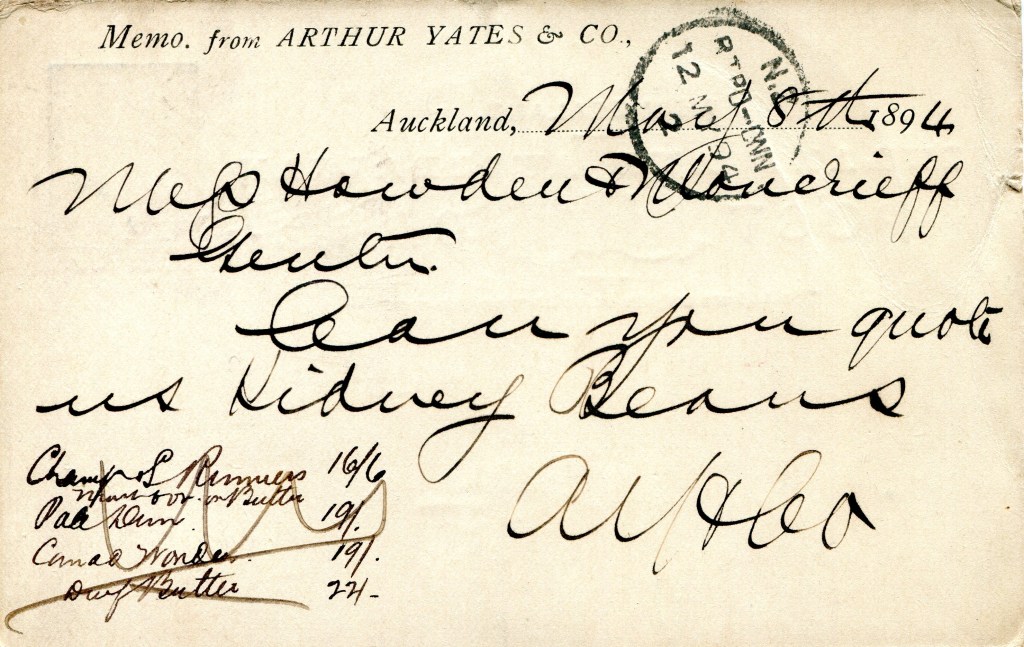 Memo. from ARTHUR YATES & CO.,
N.Z.
RTPO-DWN
12 MY 94
2
Auckland, May 8th 1894
Messrs Howden & Moncrieff
Gents.
Can you quote
us Kidney Beans
AY & Co
Champ. S. Runners 16/6
or Butter
Pale Dun 19/.
Canad Wonder 19/.
Dwf Butter 22/-